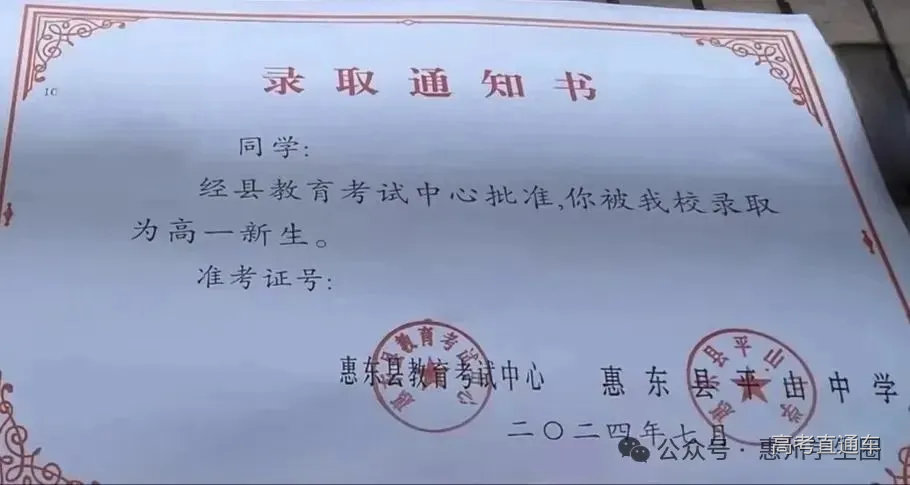 录取通知书
10
同学:
经县教育考试中心批准,你被我校录取
为高一新生。
准考证号:
惠东县教育考试中心
惠东县平山中学
二〇二四年七月
高考直通车